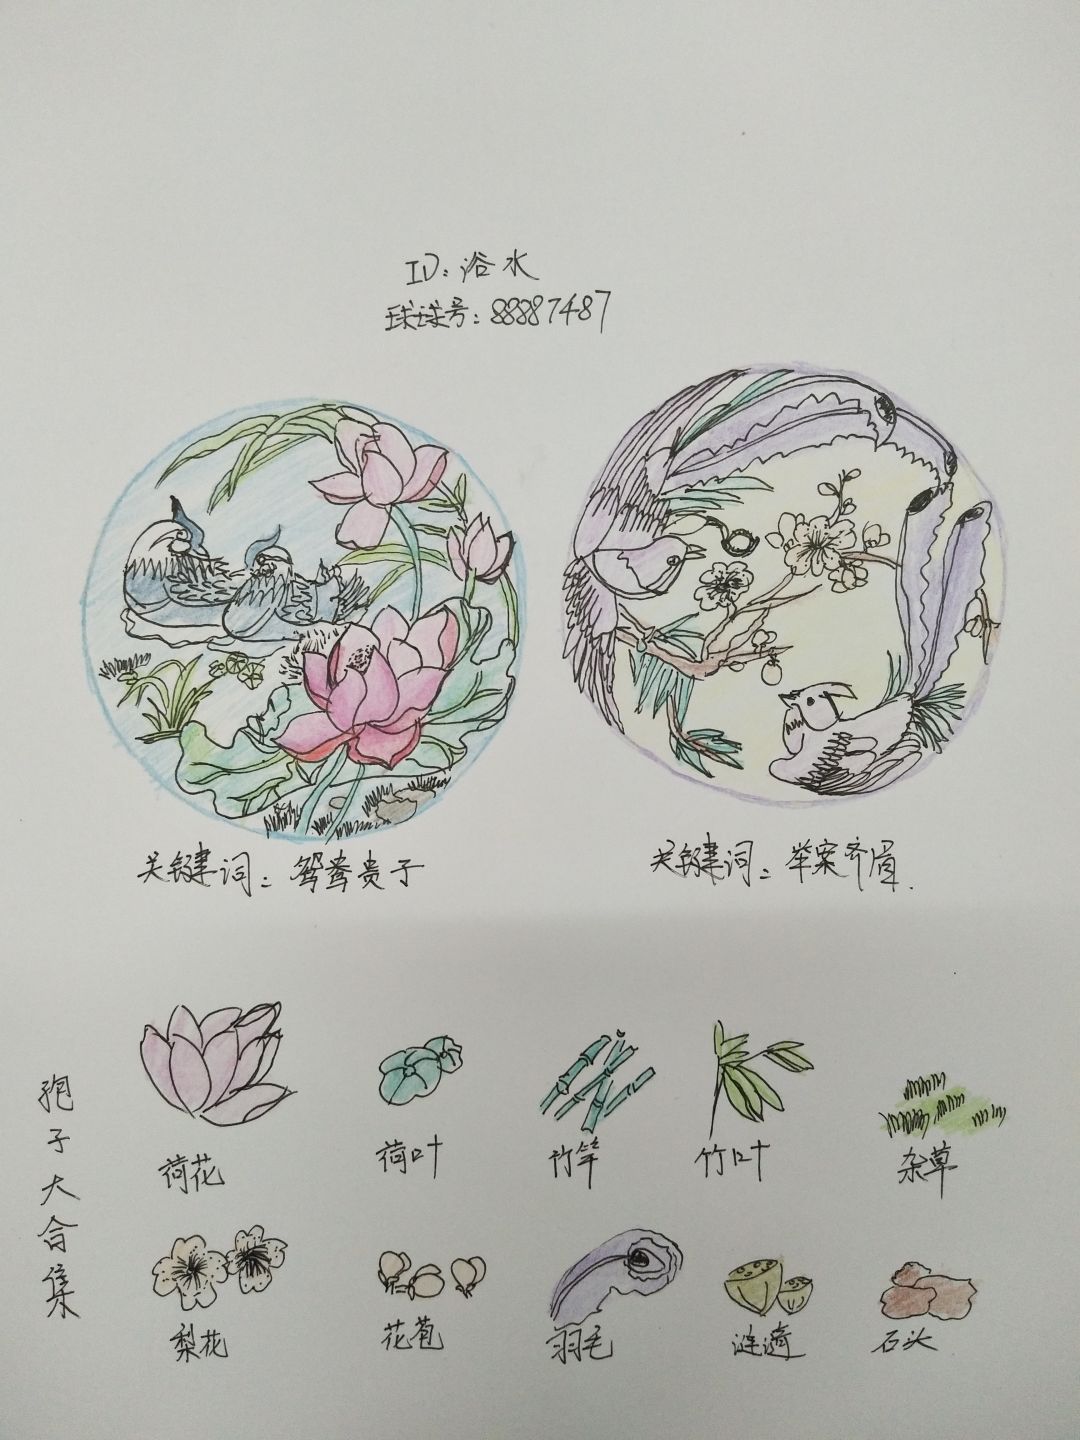 ID：浴水
球球号：88887487
关键词：鸳鸯贵子
关键词：举案齐眉.
孢子大合集
荷花
荷叶
竹竿
竹叶
杂草
梨花
花苞
羽毛
涟漪
石头